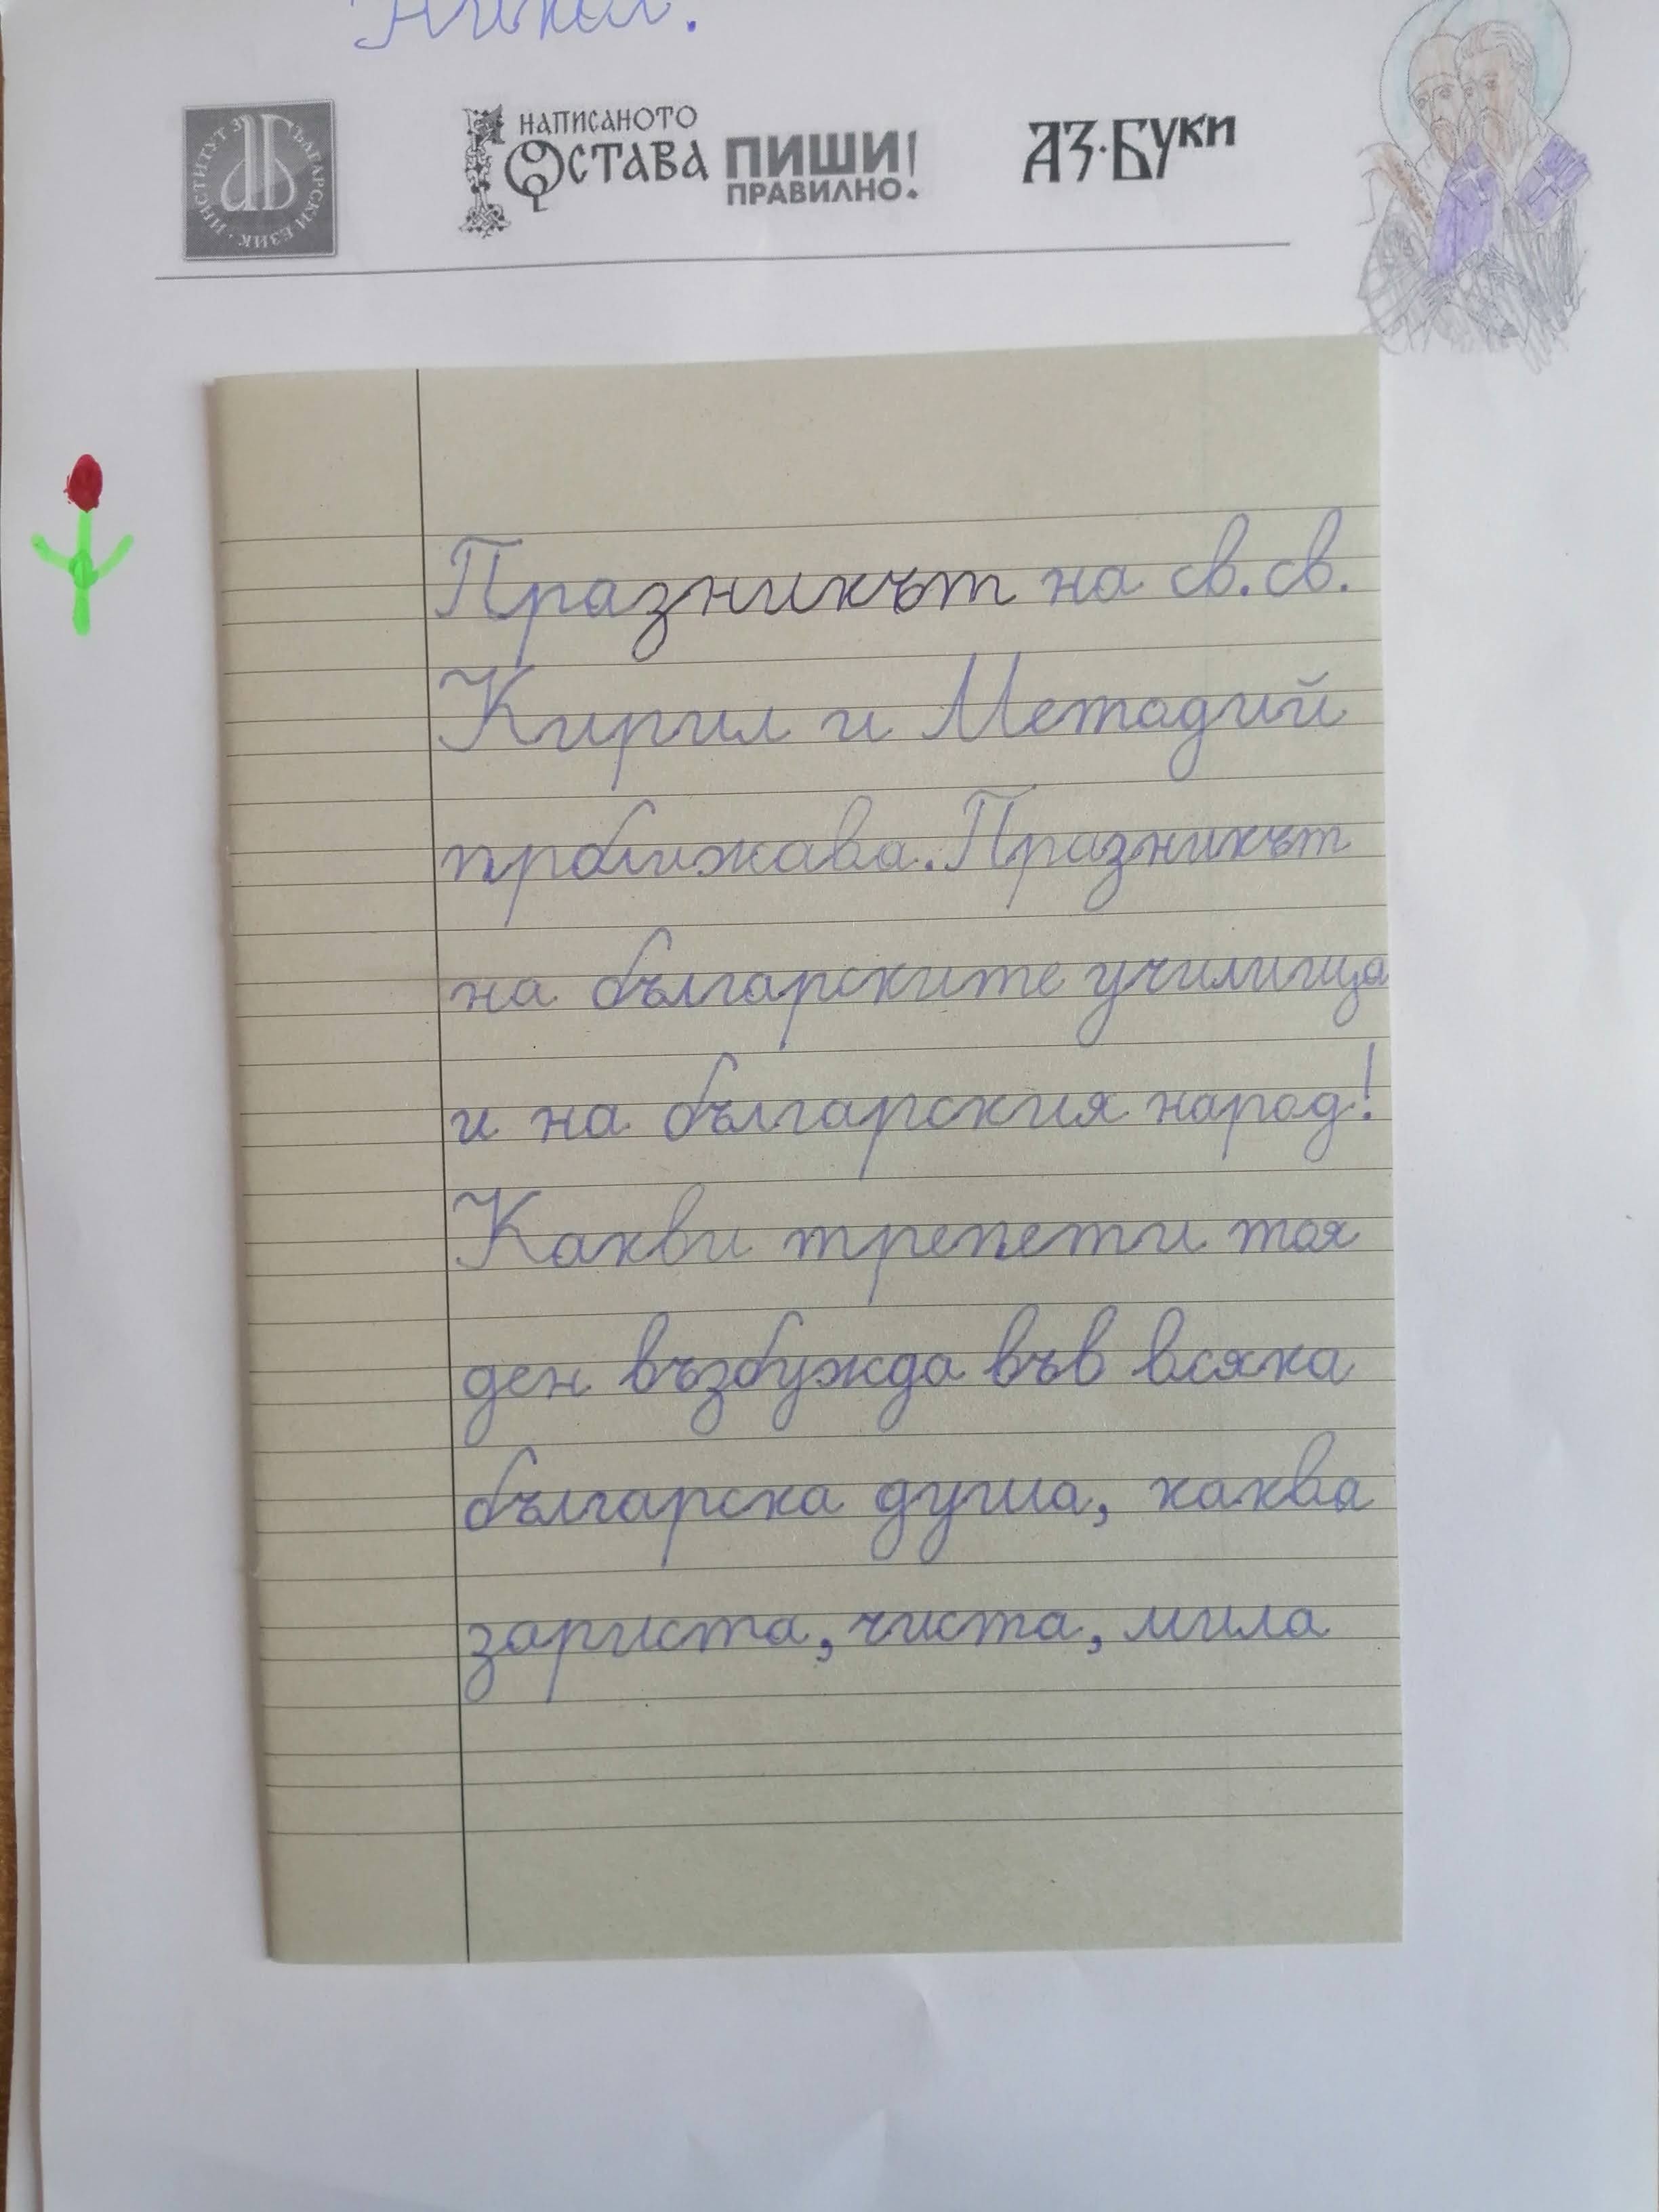 ИНСТИТУТ ЗА БЪЛГАРСКИ ЕЗИК
НАПИСАНОТО
ОСТАВА
ПИШИ!
ПРАВИЛНО.
АЗ·БУКИ
Празникът на св. св.
Кирил и Методий
прближава. Празникът
на българските училища
и на българския народ!
Какви трепети тоя
ден възбужда във всяка
българска душа, каква
зариста, чиста, мила